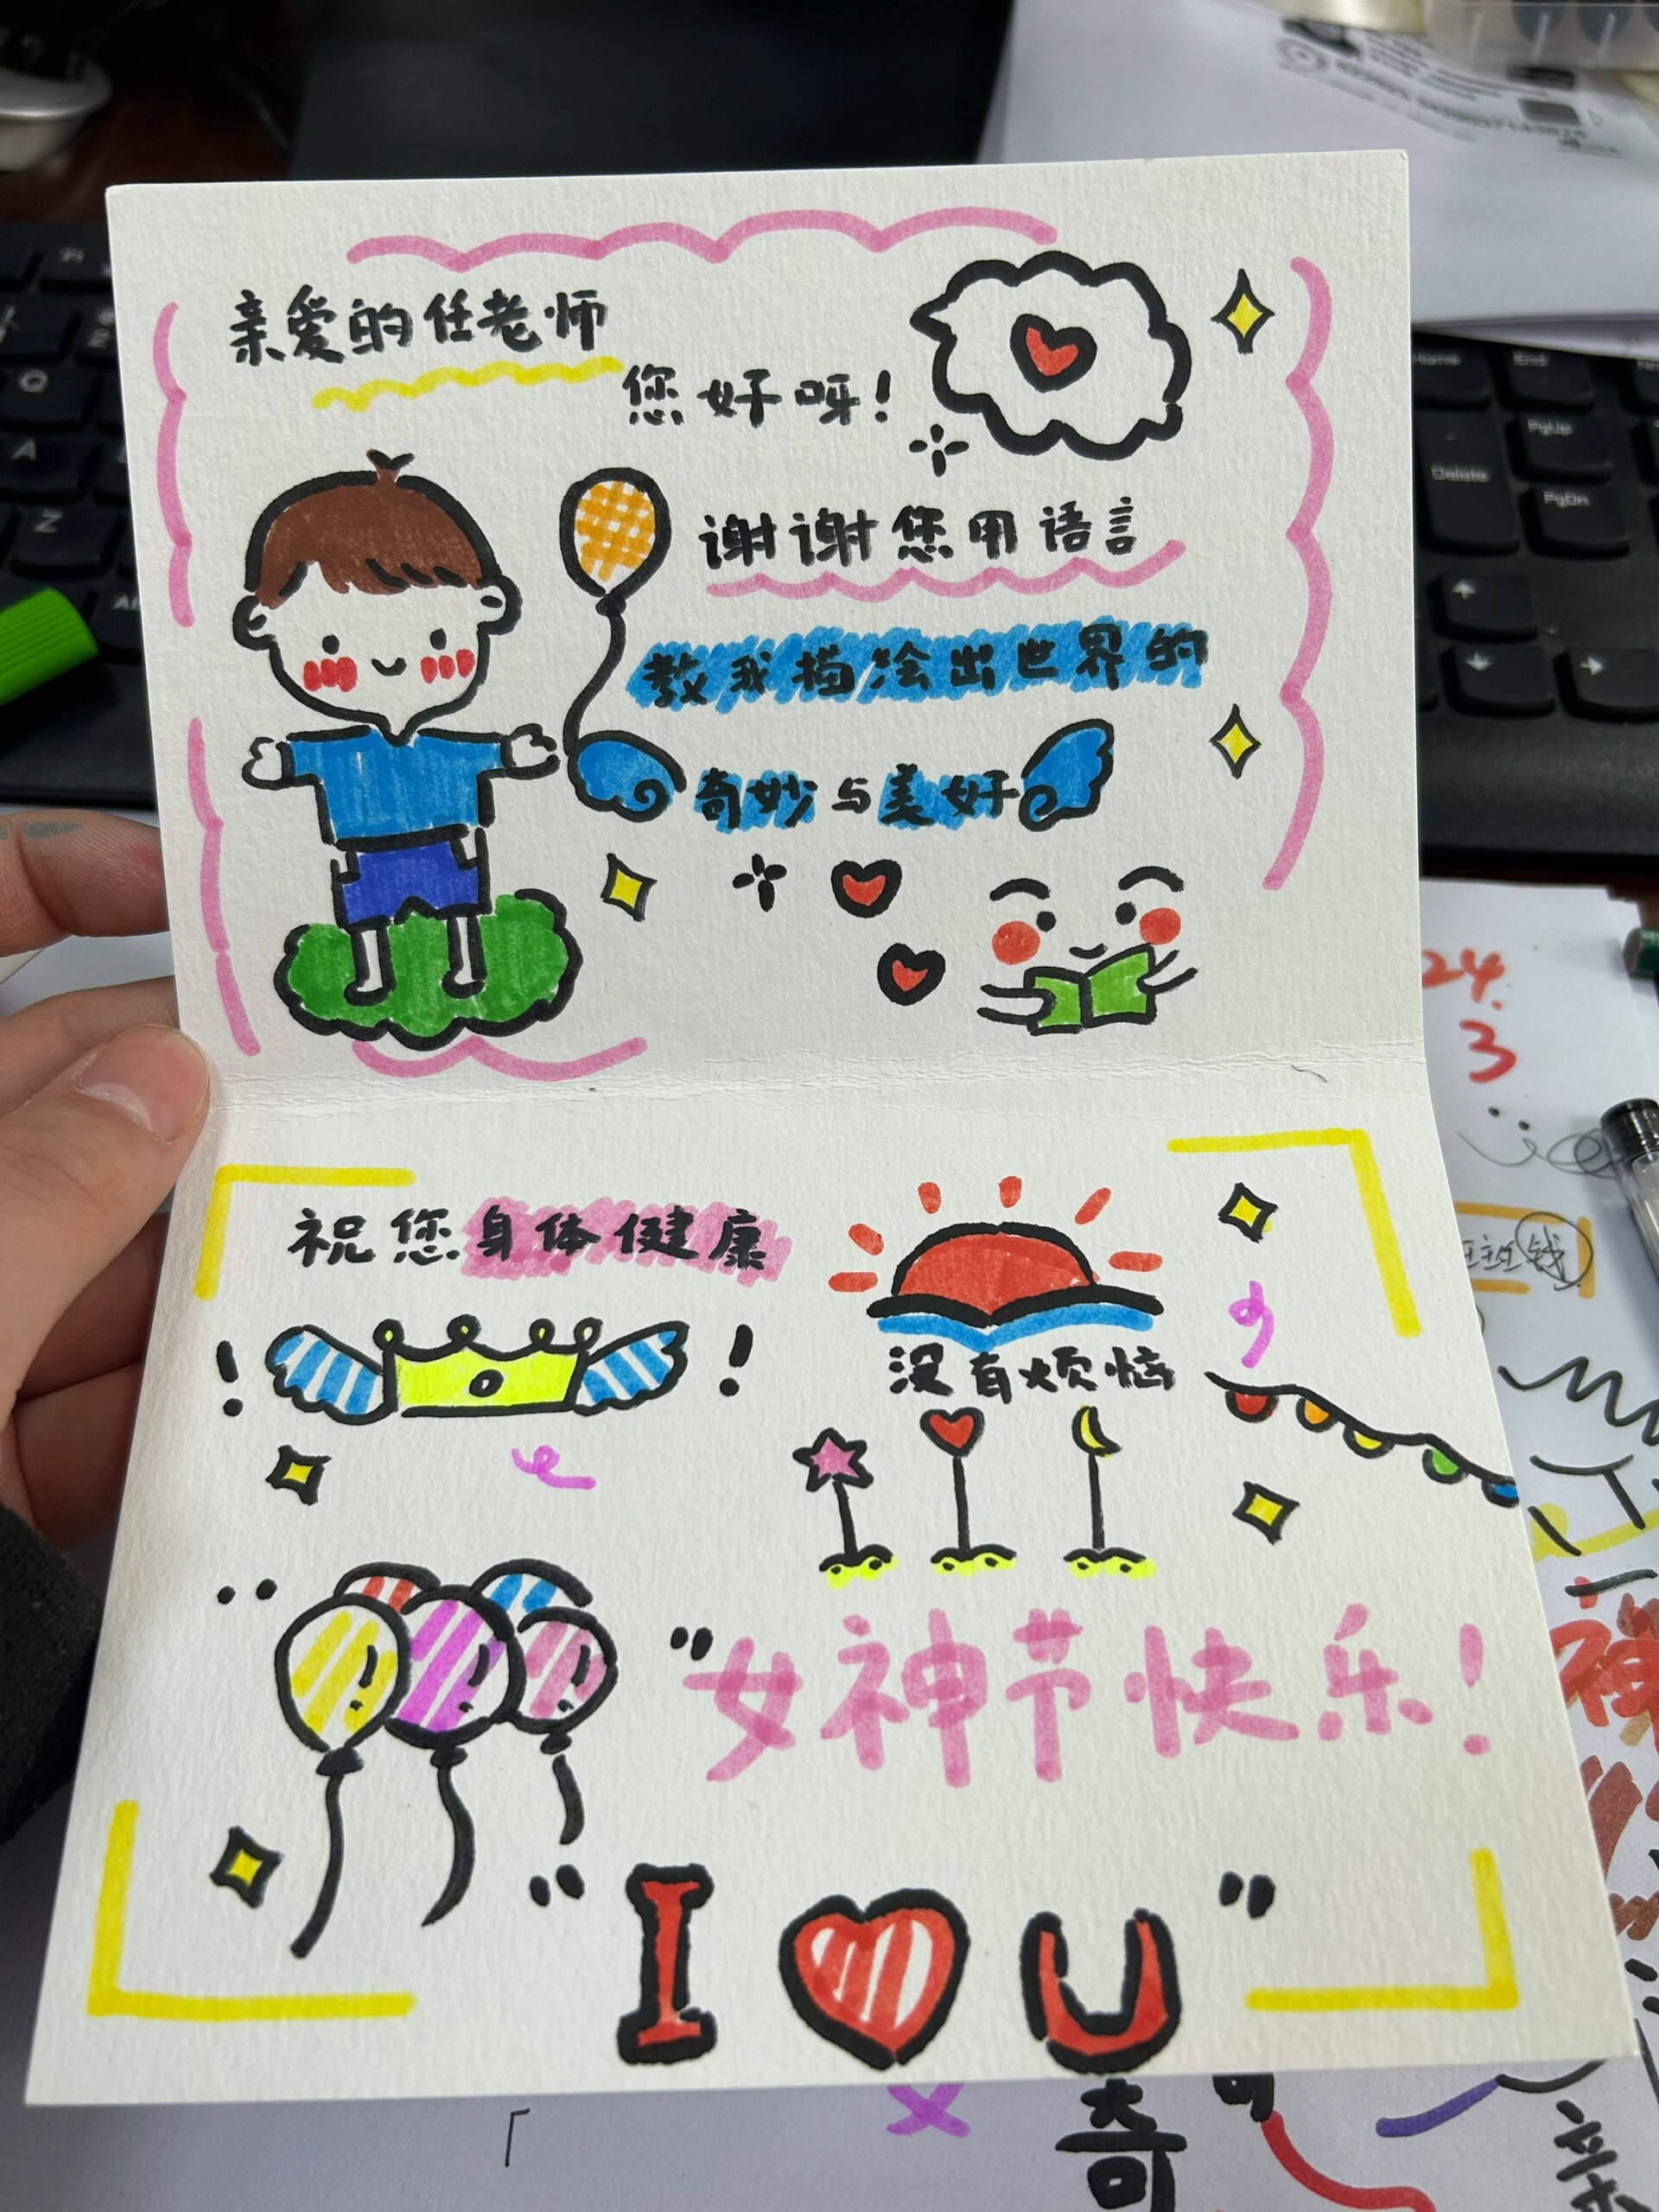 亲爱的任老师
您好呀!
谢谢您用语言
教我描绘出世界的
奇妙与美好
祝您身体健康
没有烦恼
"女神节快乐!
"I U"
24.
3
钱
神
奇
Q
A
Z
Home
End
PgUp
Delete
PgDn